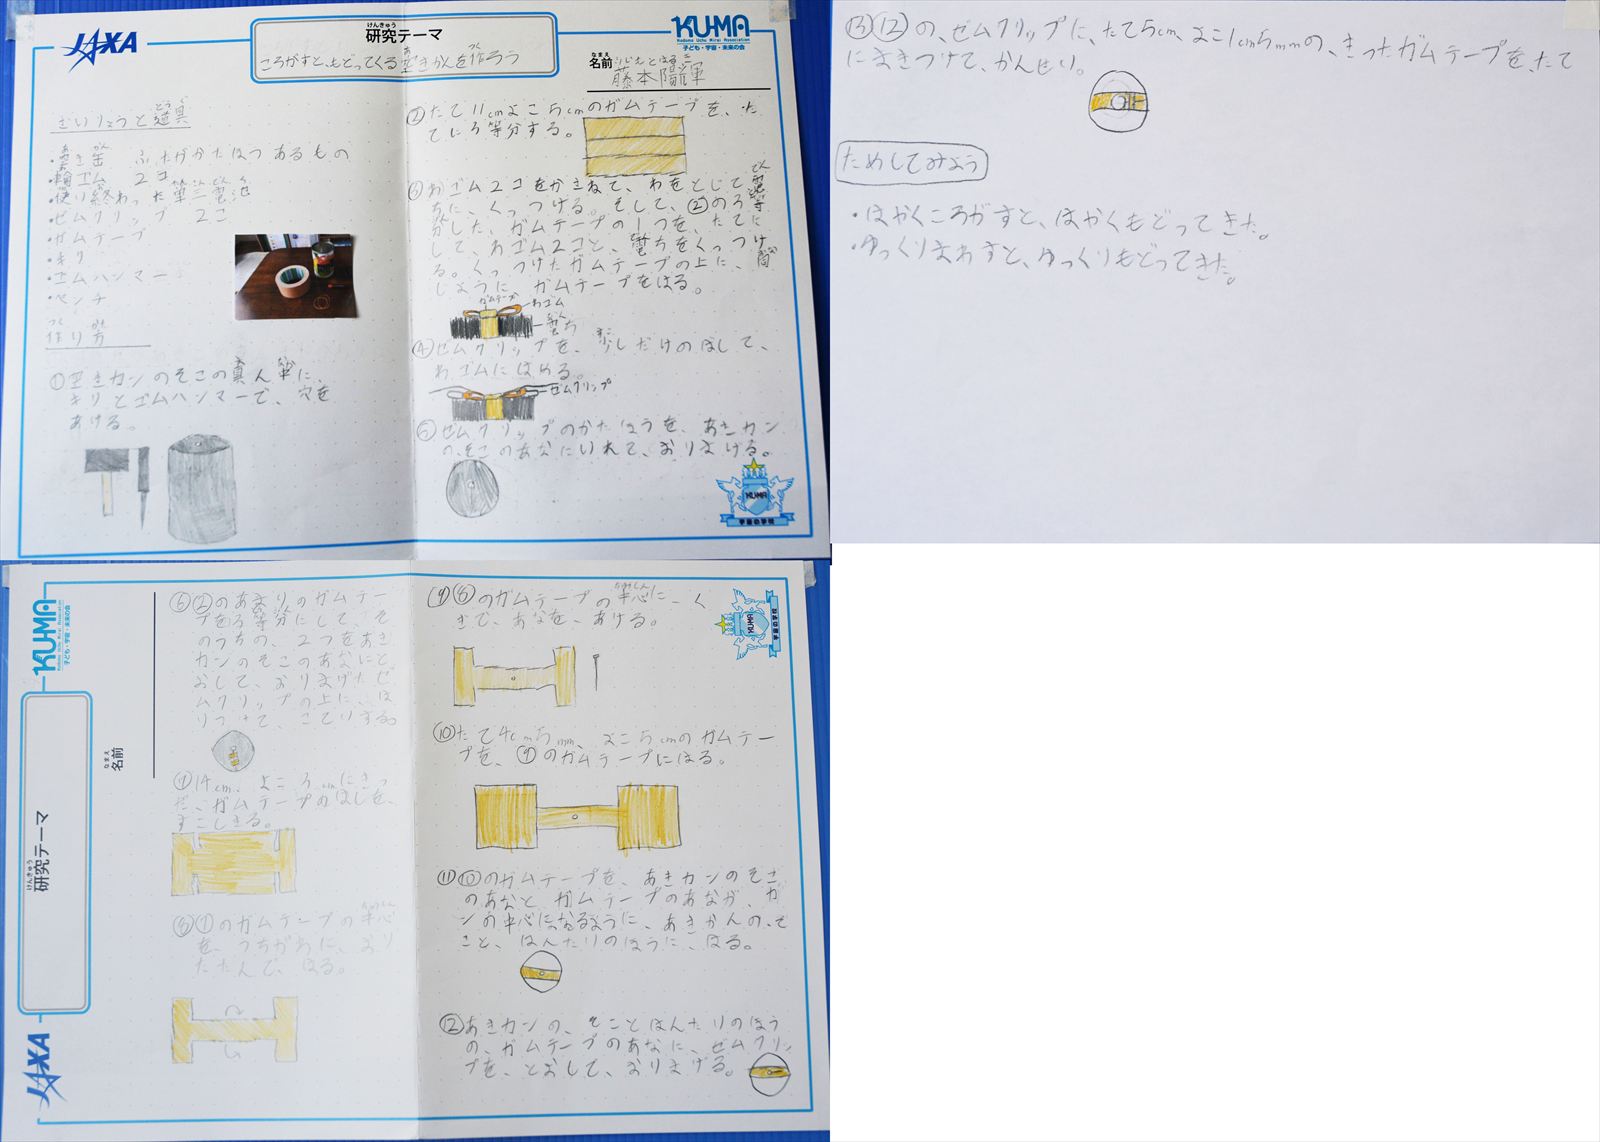 JAXA
けんきゅう
研究テーマ
ころがすと、もどってくる空きかんを作ろう
KUMA
Kodomo Uchu Mirai Association
子ども・宇宙・未来の会
なまえ
名前
藤本陽輝
ざいりょうと道具
・空き缶 ふたがかたほうあるもの
・輪ゴム 2コ
・使い終わった単三電池
・ゼムクリップ 2こ
・ガムテープ
・キリ
・ゴムハンマー
・ペンチ
作り方
①空きカンのそこの真ん中に、
キリとゴムハンマーで、穴を
あける。
②たて11cmよこ5cmのガムテープを、た
てに3等分する。
③わゴム2コをかさねて、わをとじて電
ちに、くっつける。そして、②の3等
分した、ガムテープの1つを、たてに
して、わゴム2コと、電ちをくっつけ
る。くっつけたガムテープの上に、同
じように、ガムテープをはる。
ガムテープ
わゴム
電ち
④ゼムクリップを、少しだけのばして、
わゴムにはめる。
ゼムクリップ
⑤ゼムクリップのかたほうを、あきカン
の、そこのあなにいれて、おりまげる。
KUMA
宇宙の学校
⑥②のあまりのガムテー
プを3等分にして、そ
のうちの、2つをあき
カンのそこのあなにと
おして、おりまげたゼ
ムクリップの上に、は
りつけて、こていする。
⑦14cm、よこ3cmにきっ
た、ガムテープのはしを、
すこしきる。
⑧⑦のガムテープの中心
を、うちがわに、おり
たたんで、はる。
⑨⑧のガムテープの中心に、く
ぎで、あなを、あける。
⑩たて4cm5mm、よこ5cmのガムテー
プを、⑨のガムテープにはる。
⑪⑩のガムテープを、あきカンのそこ
のあなと、ガムテープのあなが、カ
ンの中心になるように、あきかんの、そ
こと、はんたいのほうに、はる。
⑫あきカンの、そことはんたいのほう
の、ガムテープのあなに、ゼムクリッ
プを、とおして、おりまげる。
KUMA
Kodomo Uchu Mirai Association
子ども・宇宙・未来の会
なまえ
名前
けんきゅう
研究テーマ
JAXA
KUMA
宇宙の学校
⑬⑫の、ゼムクリップに、たて5cm、よこ1cm5mmの、きったガムテープを、たて
にまきつけて、かんせい。
ためしてみよう
・はやくころがすと、はやくもどってきた。
・ゆっくりまわすと、ゆっくりもどってきた。